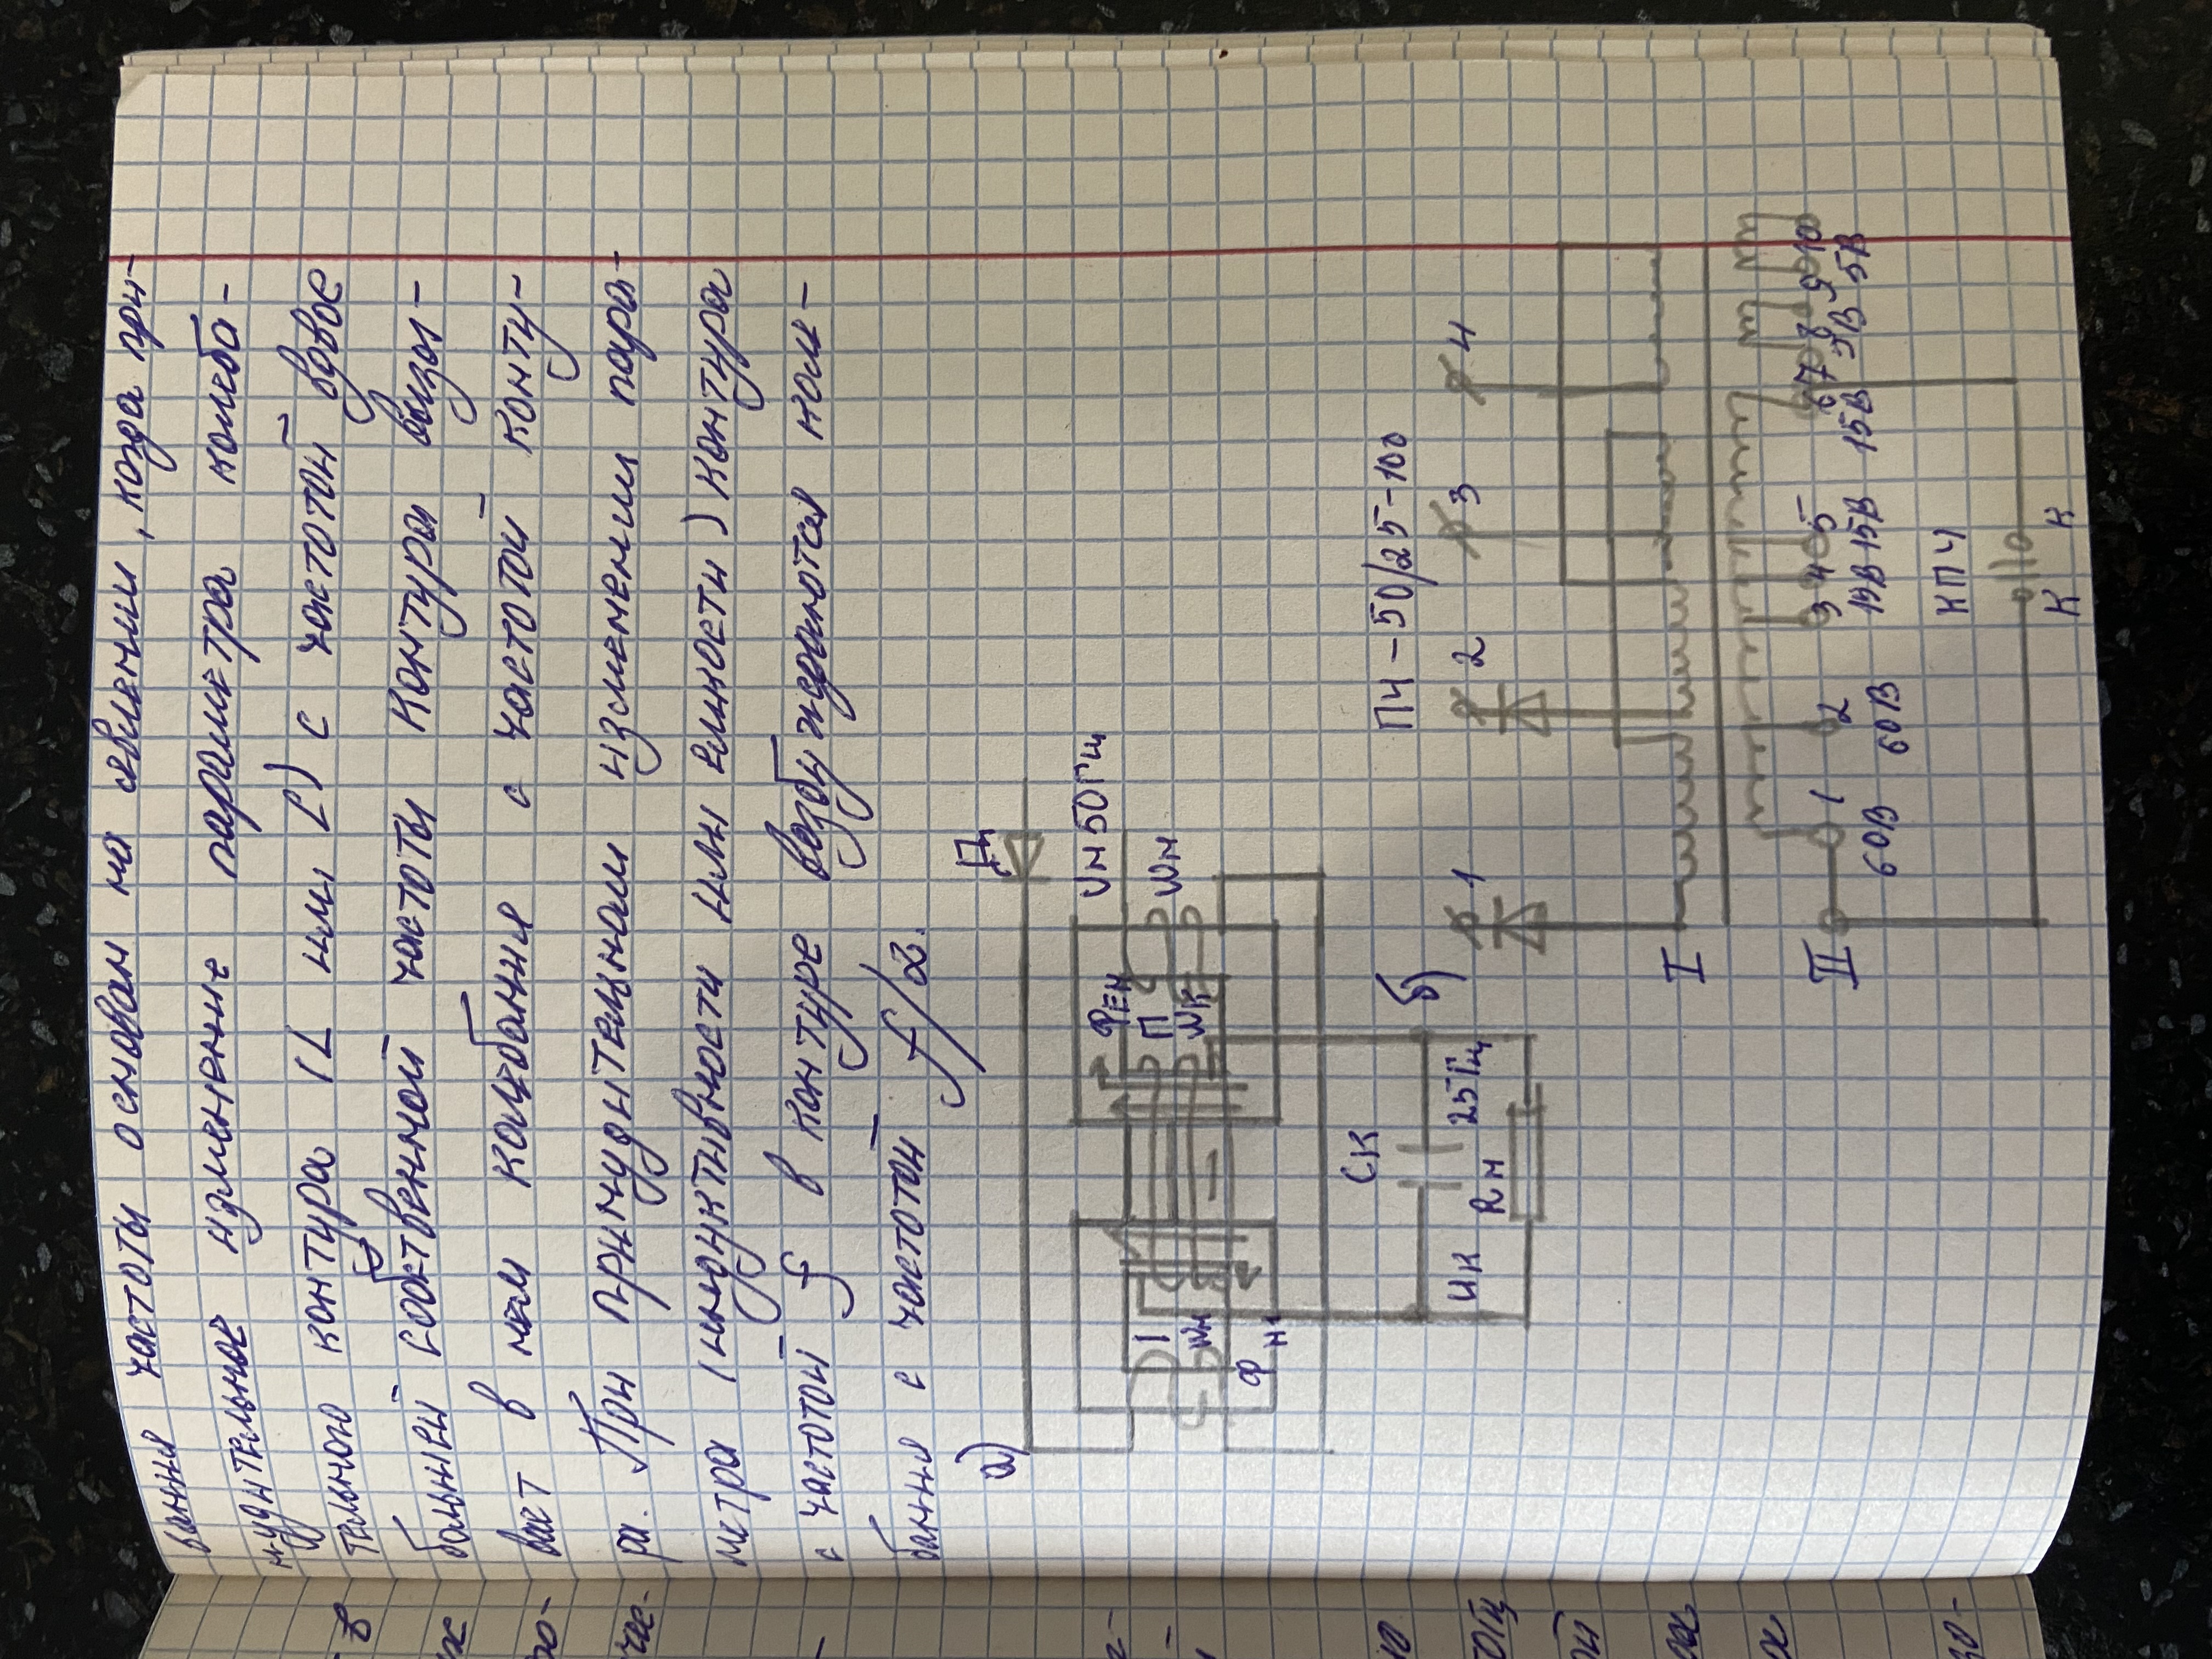 вания частоты основан на явлении, когда при-
нудительное изменение параметра колеба-
тельного контура (L или C) с частотой вдвое
большей собственной частоты контура вызы-
вает в нем колебания с частотой конту-
ра. При принудительном изменении пара-
метра (индуктивности или емкости) контура
с частотой f в контуре возбуждаются коле-
бания с частотой f/2.
а)
Д
Uн 50Гц
ФЕН
П
Wк
Wн
Wн
Фн1
Cк
Uк
25Гц
Rн
б)
ПЧ-50/25-100
1 2 3 4
I
II
1 2 3 4 5 6 7 8 9 10
60В 60В 15В 15В 15В 5В 5В
КПЧ
К К